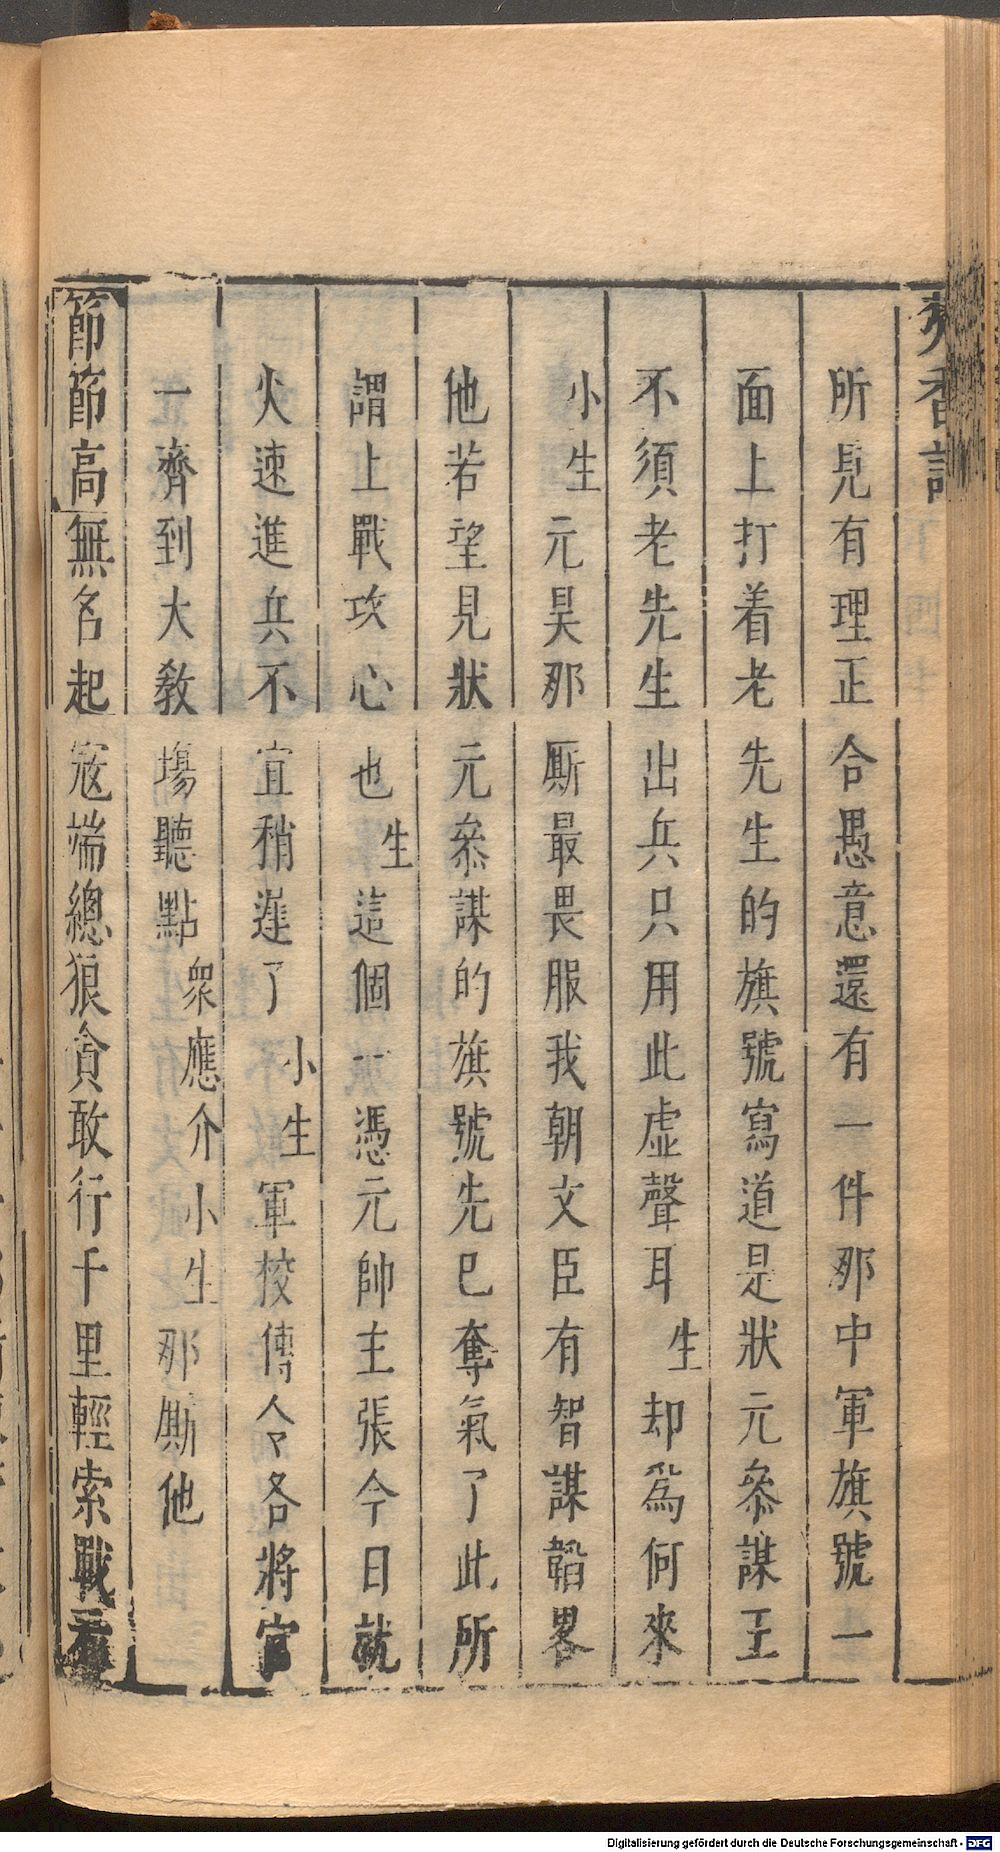 香記
所見有理正合愚意還有一件那中軍旗號一
面上打着老先生的旗號寫道是狀元叅謀王
不須老先生出兵只用此虛聲耳生却爲何來
小生元昊那厮最畏服我朝文臣有智謀韜畧
他若望見狀元叅謀的旗號先已奪氣了此所
謂上戰攻心也生這個一憑元帥主張今日就
火速進兵不宜稍遲了小生軍校傳令各將官
一齊到大敎塲聽點衆應介小生那厮他
節節高無名起寇端總狼貪敢行千里輕索戰
Digitalisierung gefördert durch die Deutsche Forschungsgemeinschaft - DFG